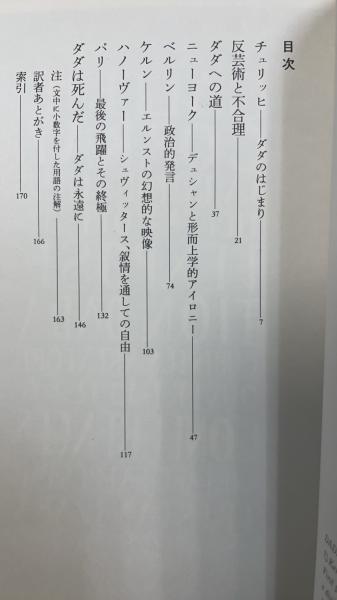 目次
チューリッヒ——ダダのはじまり——7
反芸術と不合理——21
ダダへの道——37
ニューヨーク——デュシャンと形而上学的アイロニー——47
ベルリン——政治的発言——74
ケルン——エルンストの幻想的な映像——103
ハノーヴァー——シュヴィッタース、叙情を通しての自由——117
パリ——最後の飛躍とその終極——132
ダダは死んだ——ダダは永遠に——146
注（文中に小数字を付した用語の注解）——163
訳者あとがき——166
索引——170